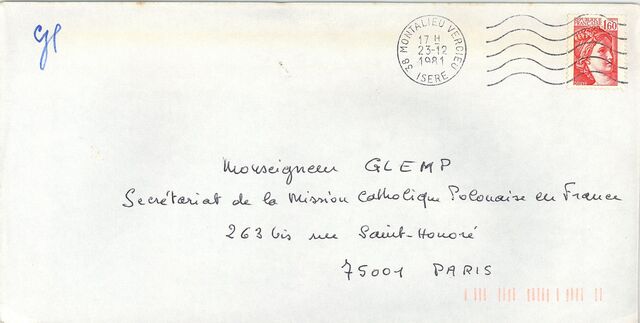 Gl
38 MONTALIEU VERCIEU
17 H
23-12
1981
ISERE
REPUBLIQUE FRANCAISE
1,60
Monseigneur GLEMP
Secrétariat de la Mission Catholique Polonaise en France
263 bis rue Saint-Honoré
75001 PARIS